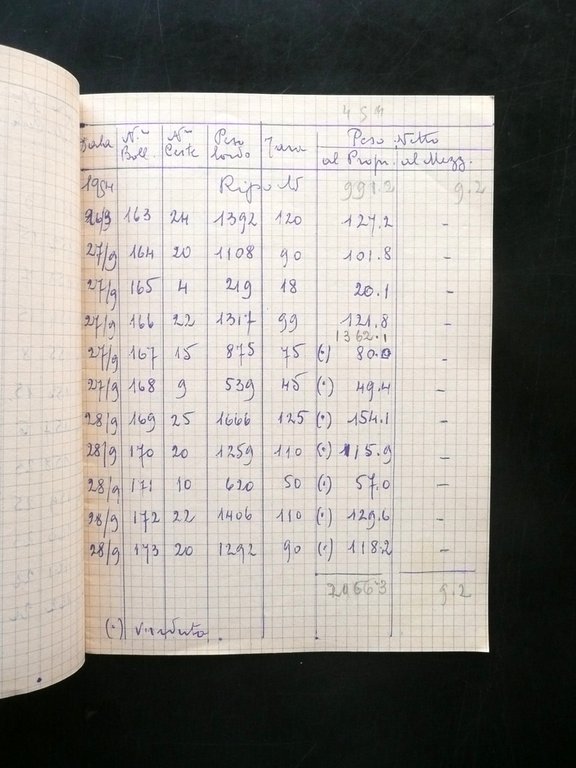 Data N.ro Boll. N.ro Ceste Peso lordo Tara Peso Netto
al Propr. al Mezz.
1954 Riporto 991.2 9.2
26/9 163 24 1392 120 127.2 -
27/9 164 20 1108 90 101.8 -
27/9 165 4 219 18 20.1 -
27/9 166 22 1317 99 121.8 -
1362.1
27/9 167 15 875 75 (.) 80.0 -
27/9 168 9 539 45 (.) 49.4 -
28/9 169 25 1666 125 (.) 154.1 -
28/9 170 20 1259 110 (.) 115.9 -
28/9 171 10 620 50 (.) 57.0 -
28/9 172 22 1406 110 (.) 129.6 -
28/9 173 20 1292 90 (.) 118.2 -
9.2
(.) venduta